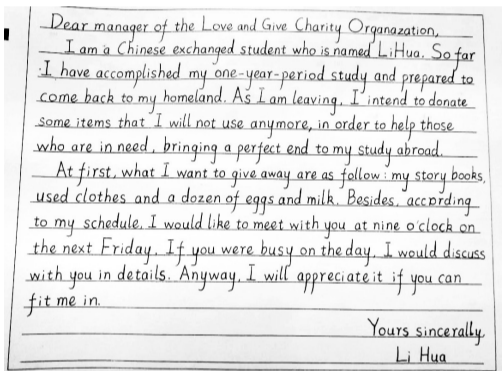 Dear manager of the Love and Give Charity Organazation,
I am a Chinese exchanged student who is named LiHua. So far
I have accomplished my one-year-period study and prepared to
come back to my homeland. As I am leaving, I intend to donate
some items that I will not use anymore, in order to help those
who are in need, bringing a perfect end to my study abroad.
At first, what I want to give away are as follow: my story books,
used clothes and a dozen of eggs and milk. Besides, according
to my schedule, I would like to meet with you at nine o'clock on
the next Friday. If you were busy on the day, I would discuss
with you in details. Anyway, I will appreciate it if you can
fit me in.
Yours sincerally
Li Hua